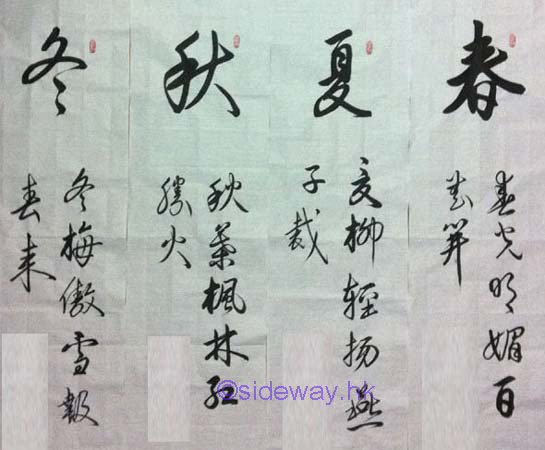 春
春光明媚百
花
夏
夏柳輕扬燕
子裁
秋
秋葉楓林红
勝火
冬
冬梅傲雪報
春来
©sideway.hk